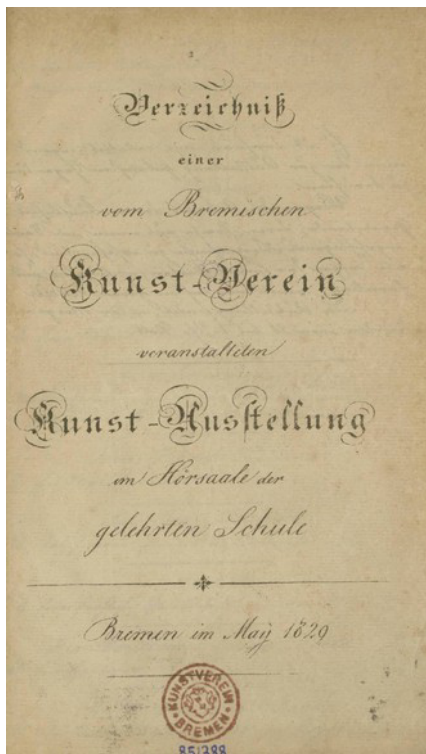 Verzeichniß
einer
vom Bremischen
Kunst-Verein
veranstalteten
Kunst-Ausstellung
im Hörsaale der
gelehrten Schule
Bremen im Maÿ 1829
KUNSTVEREIN
BREMEN
851388